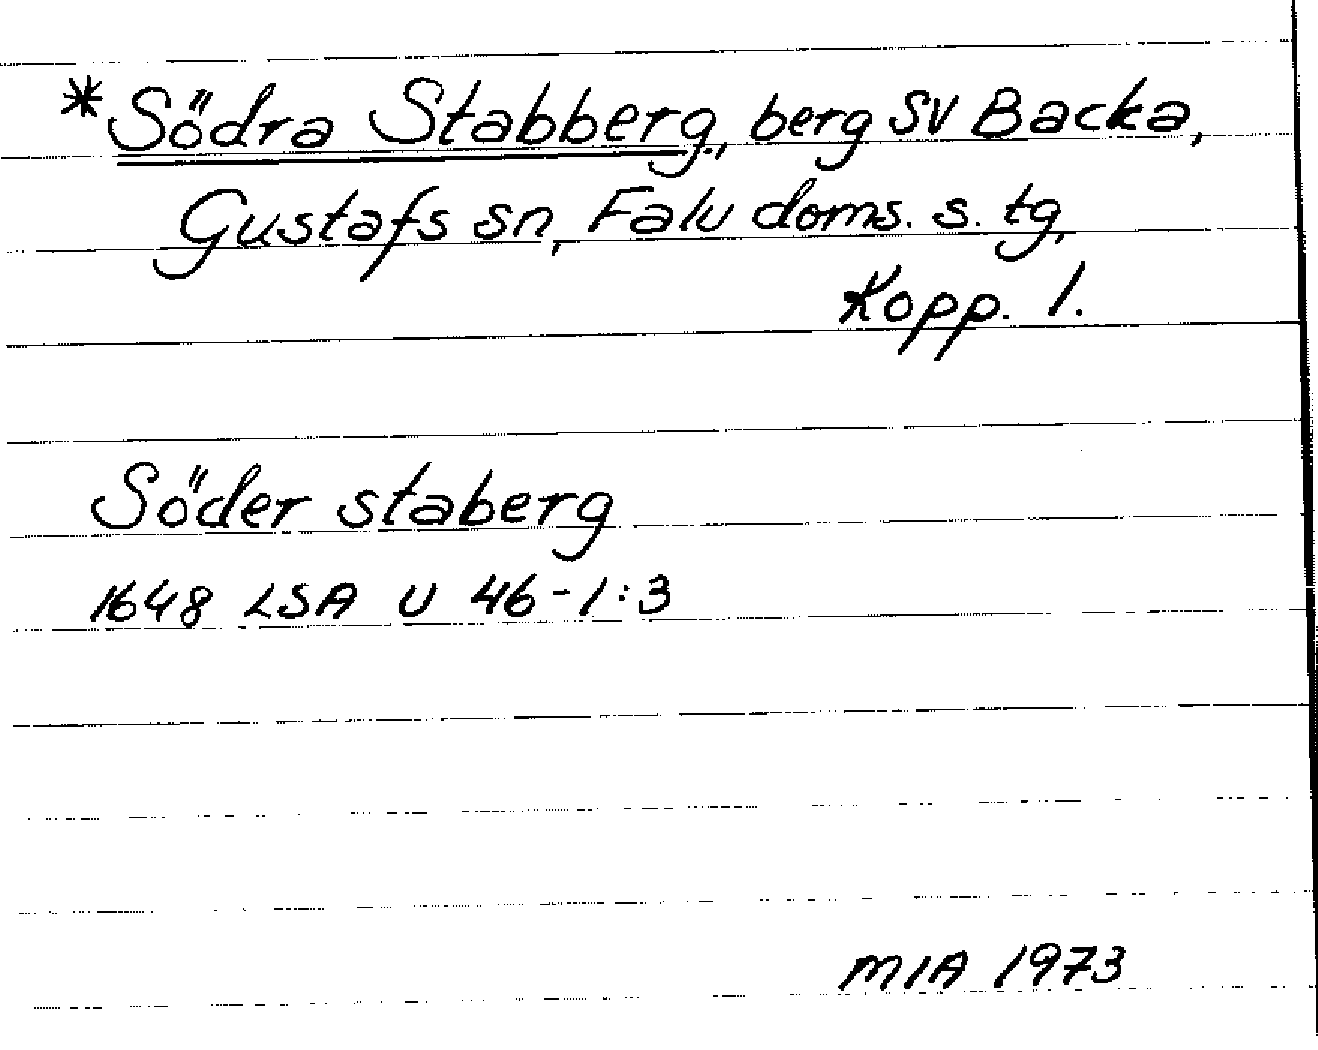 *Södra Stabberg, berg SV Backa,
Gustafs sn, Falu doms. s. tg,
Kopp. l.
Söder staberg
1648 LSA U 46-1:3
MIA 1973